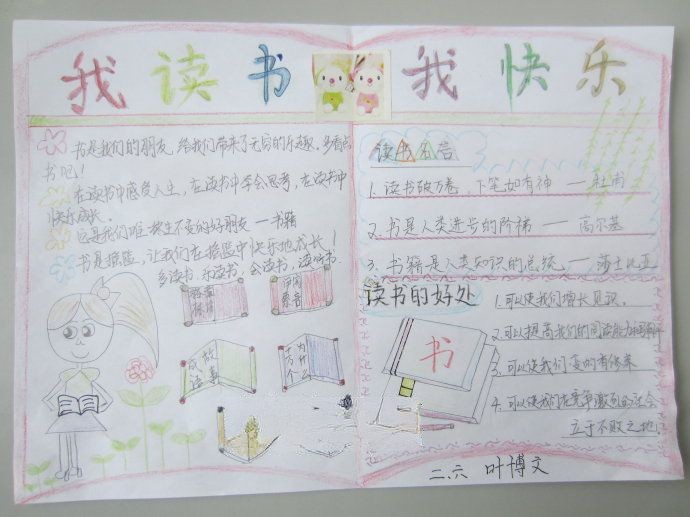 我读书 我快乐
书是我们的朋友,给我们带来了无穷的乐趣,多看点
书吧!
在读书中感受人生,在读书中学会思考,在读书中
快乐成长。
这是我们唯一终生不变的好朋友——书籍
书是摇篮,让我们在摇篮中快乐地成长!
多读书,乐读书,会读书,读好书.
故事
成语
十万个为什么
读书名言
1. 读书破万卷,下笔如有神 —— 杜甫
2. 书是人类进步的阶梯 —— 高尔基
3. 书籍是人类知识的总统 —— 莎士比亚
读书的好处
1. 可以使我们增长见识.
2. 可以提高我们的阅读能力
3. 可以使我们变的有修养
4. 可以使我们在竞争激烈的社会
立于不败之地.
书
二、六 叶博文